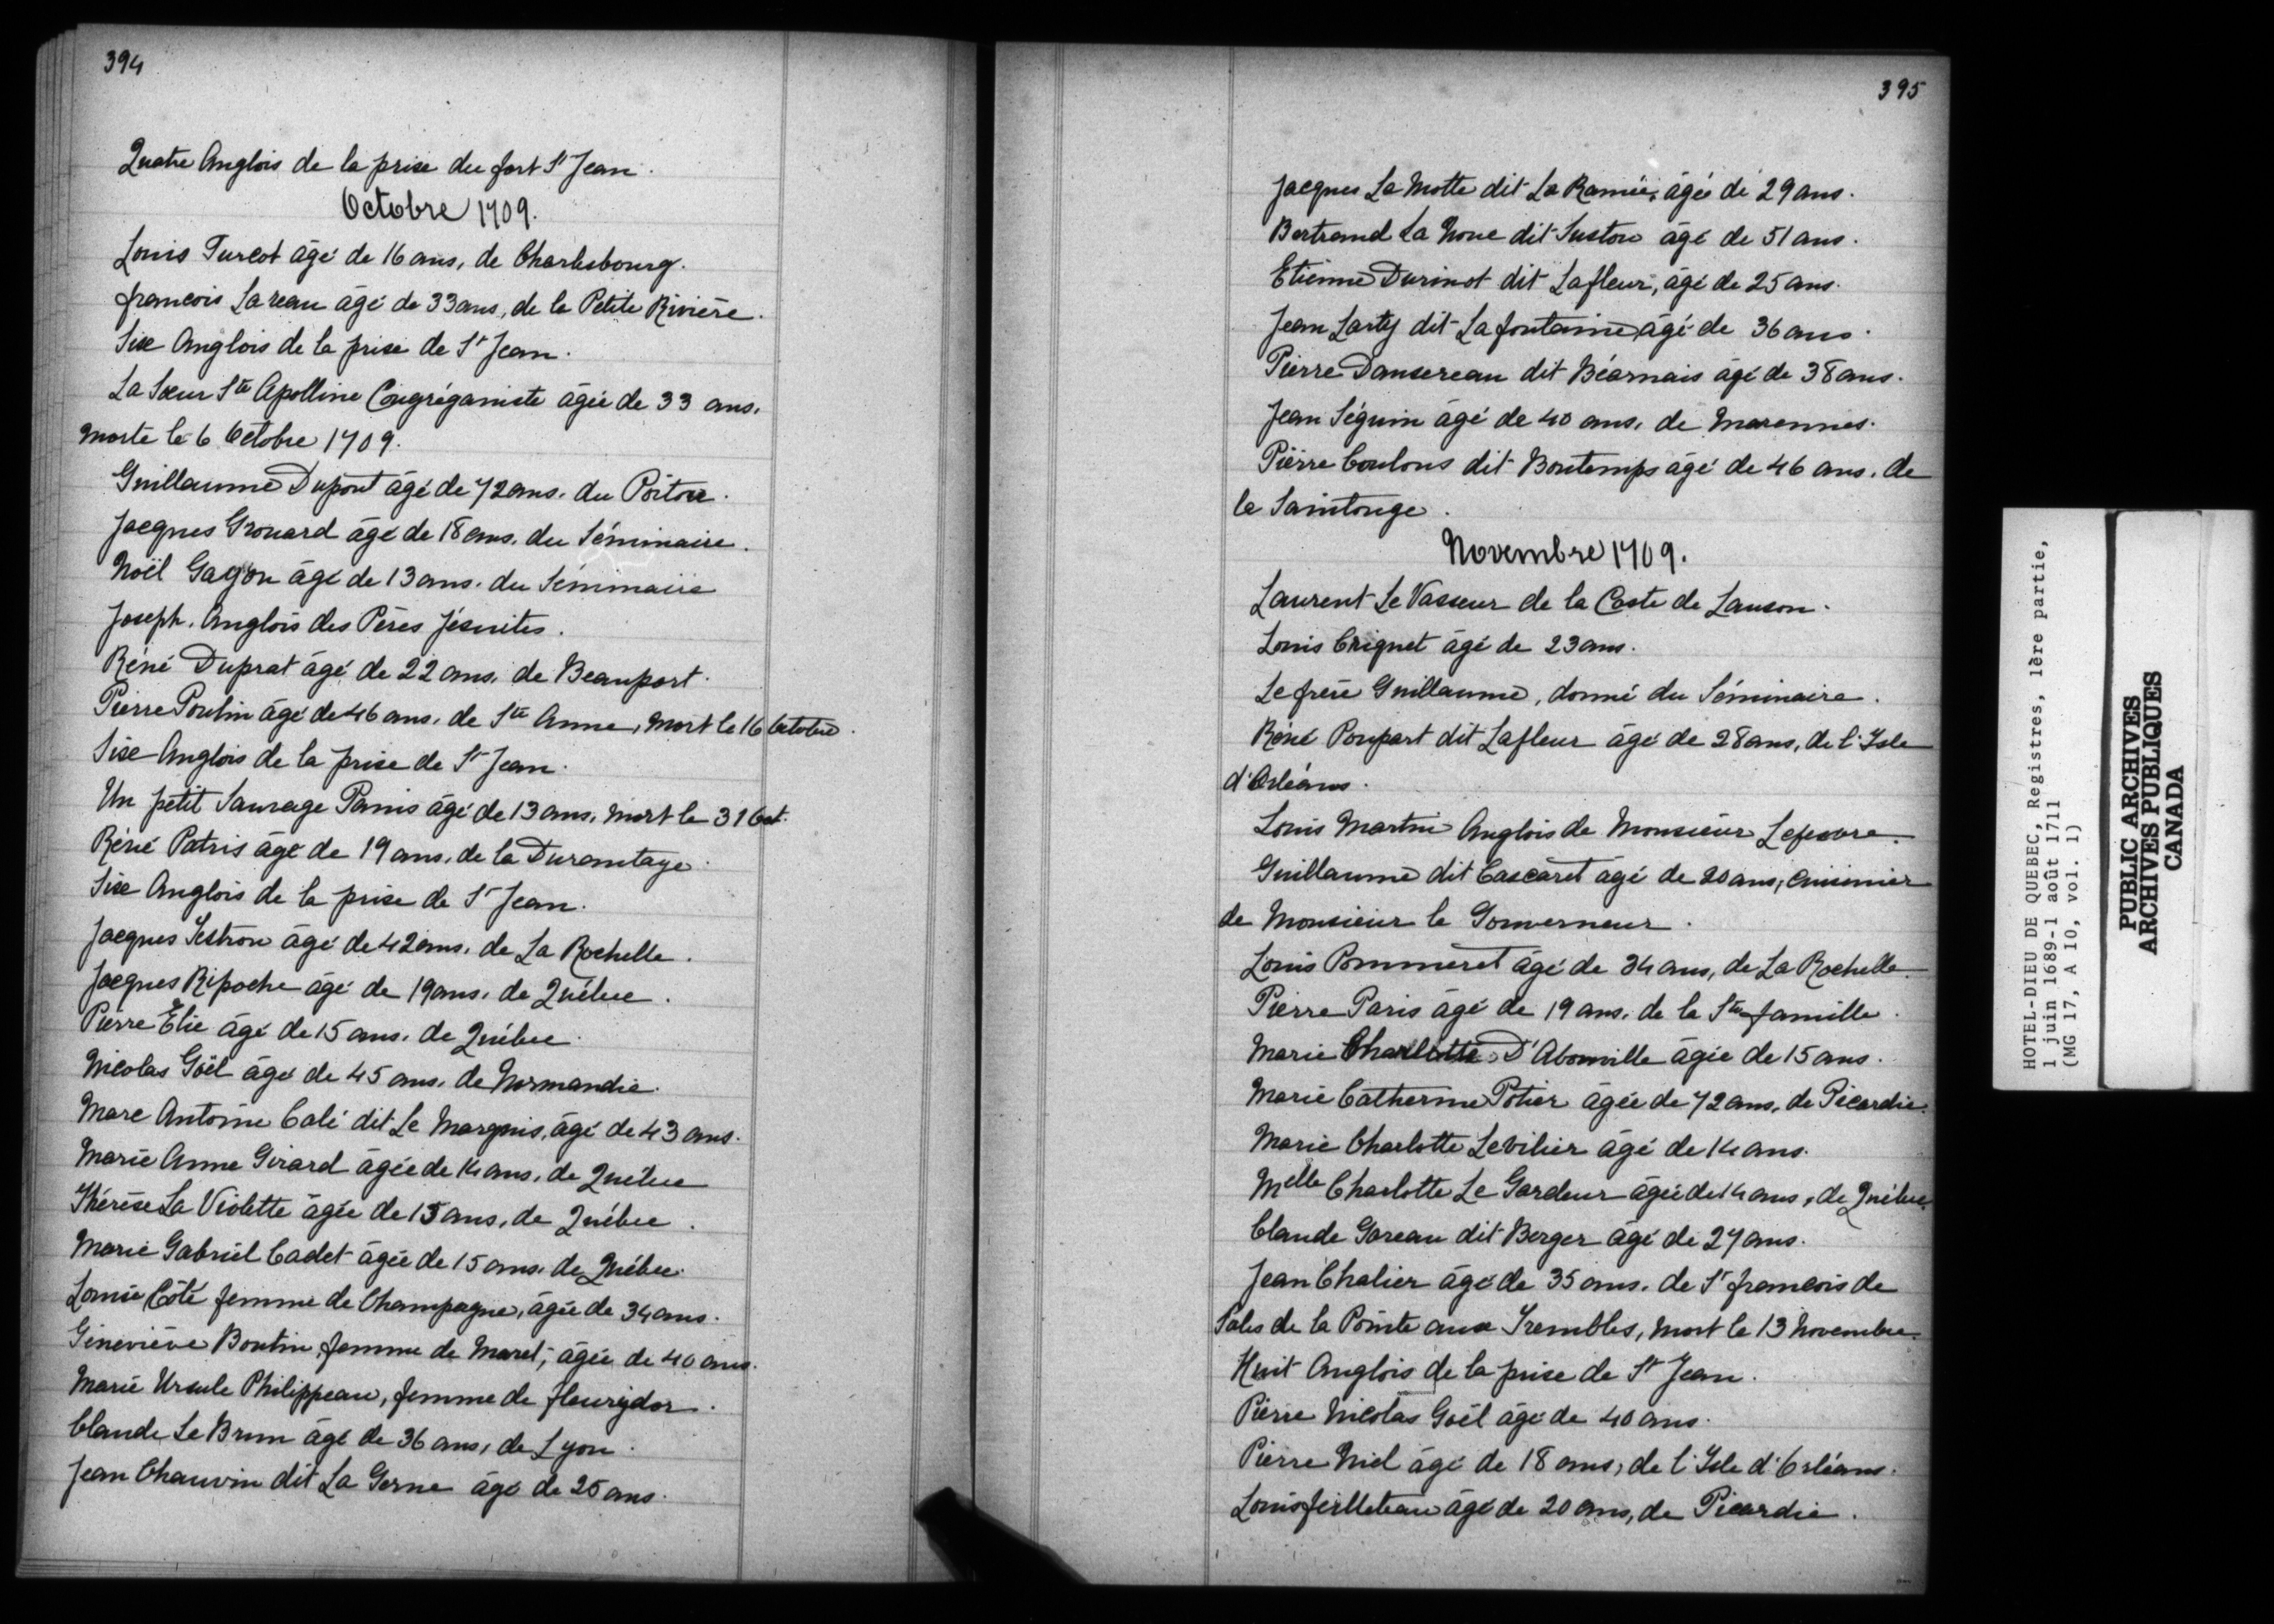 394
Quatre Anglois de la prise du fort St Jean.
Octobre 1709.
Louis Turcot âgé de 16 ans, de Charlesbourg.
francois Lareau âgé de 33 ans, de la Petite Rivière.
Six Anglois de la prise de St Jean.
La Sœur Ste Apolline Congréganiste âgée de 33 ans,
morte le 6 Octobre 1709.
Guillaume Dupont âgé de 72 ans. du Poitou.
Jacques Grouard âgé de 18 ans. du Séminaire.
Noël Gagon âgé de 13 ans. du Séminaire
Joseph. Anglois des Pères Jésuites.
Réné Duprat âgé de 22 ans. de Beauport.
Pierre Poulin âgé de 46 ans. de Ste Anne, Mort le 16 Octobre.
Six Anglois de la prise de St Jean.
Un petit Sauvage Panis âgé de 13 ans, mort le 31 Oct.
Réné Patris âgé de 19 ans, de la Durantaye.
Six Anglois de la prise de St Jean.
Jacques âgé de 42 ans. de La Rochelle.
Jacques Ripoche âgé de 19 ans. de Québec.
Pierre Elie âgé de 15 ans. de Québec.
Nicolas Goël âgé de 45 ans. de Normandie.
Marc Antoine Calé dit Le Marquis, âgé de 43 ans.
Marie Anne Girard âgée de 14 ans. de Québec
Thérèse La Violette âgée de 15 ans, de Québec.
Marie Gabriel Cadet âgée de 15 ans. de Québec.
Louise Côté femme de Champagne, âgée de 34 ans.
Geneviève Boutin, femme de Maret, âgée de 40 ans.
Marie Ursule Philippeau, femme de fleurydor.
Claude Le Brun âgé de 36 ans, de Lyon.
Jean Chauvin dit La Gerne âgé de 25 ans.
395
Jacques La Motte dit La Ramée, âgé de 29 ans.
Bertrand La Noue dit Suston âgé de 51 ans.
Etienne Durinot dit Lafleur, âgé de 25 ans.
Jean Larty dit Lafontaine, âgé de 36 ans.
Pierre Dansereau dit Béarnais âgé de 38 ans.
Jean Séguin âgé de 40 ans. de Marennes.
Pierre Coulons dit Bontemps âgé de 46 ans. de
la Saintonge.
Novembre 1709.
Laurent Le Vasseur de la Coste de Lauson.
Louis Crignet âgé de 23 ans.
Le frère Guillaume, donné du Séminaire.
Réné Poupart dit Lafleur âgé de 28 ans, de l'Isle
d'Orléans.
Louis Martin Anglois de Monsieur Lefevre.
Guillaume dit Cascaret âgé de 20 ans, cuisinier
de Monsieur le Gouverneur.
Louis Pommeret âgé de 34 ans, de La Rochelle.
Pierre Paris âgé de 19 ans. de la Ste famille.
Marie Charlotte D'Abonville âgée de 15 ans.
Marie Catherine Potier âgée de 72 ans, de Picardie.
Marie Charlotte Levilier âgé de 14 ans.
Melle Charlotte Le Gardeur âgée de 14 ans, de Québec.
Claude Gareau dit Berger âgé de 27 ans.
Jean Chalier âgé de 35 ans. de St francois de
Sales de la Pointe aux Trembles, mort le 13 Novembre.
Huit Anglois de la prise de St Jean.
Pierre Nicolas Goël âgé de 40 ans.
Pierre Niel âgé de 18 ans, de l'Isle d'Orléans.
Louis filleteau âgé de 20 ans, de Picardie.
HOTEL-DIEU DE QUEBEC, Registres, 1ère partie,
1 juin 1689-1 août 1711
(MG 17, A 10, vol. 1)
PUBLIC ARCHIVES
ARCHIVES PUBLIQUES
CANADA